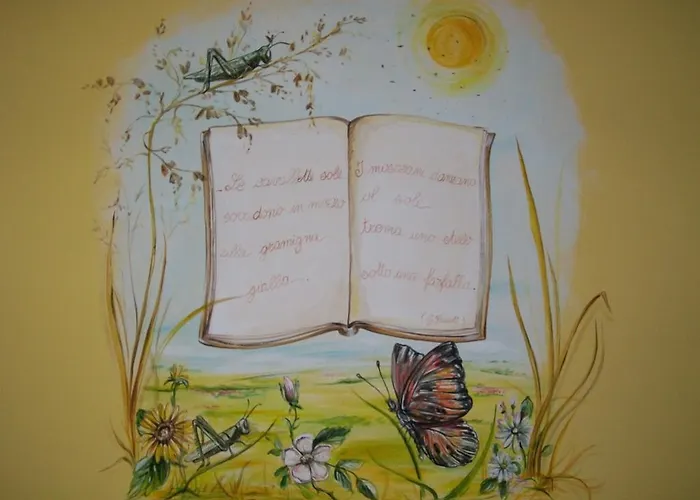 ..Le cavallette sole
sorridono in mezzo
alla gramigna
gialla....
I moscerini danzano
al sole
trema uno stelo
sotto una farfalla.